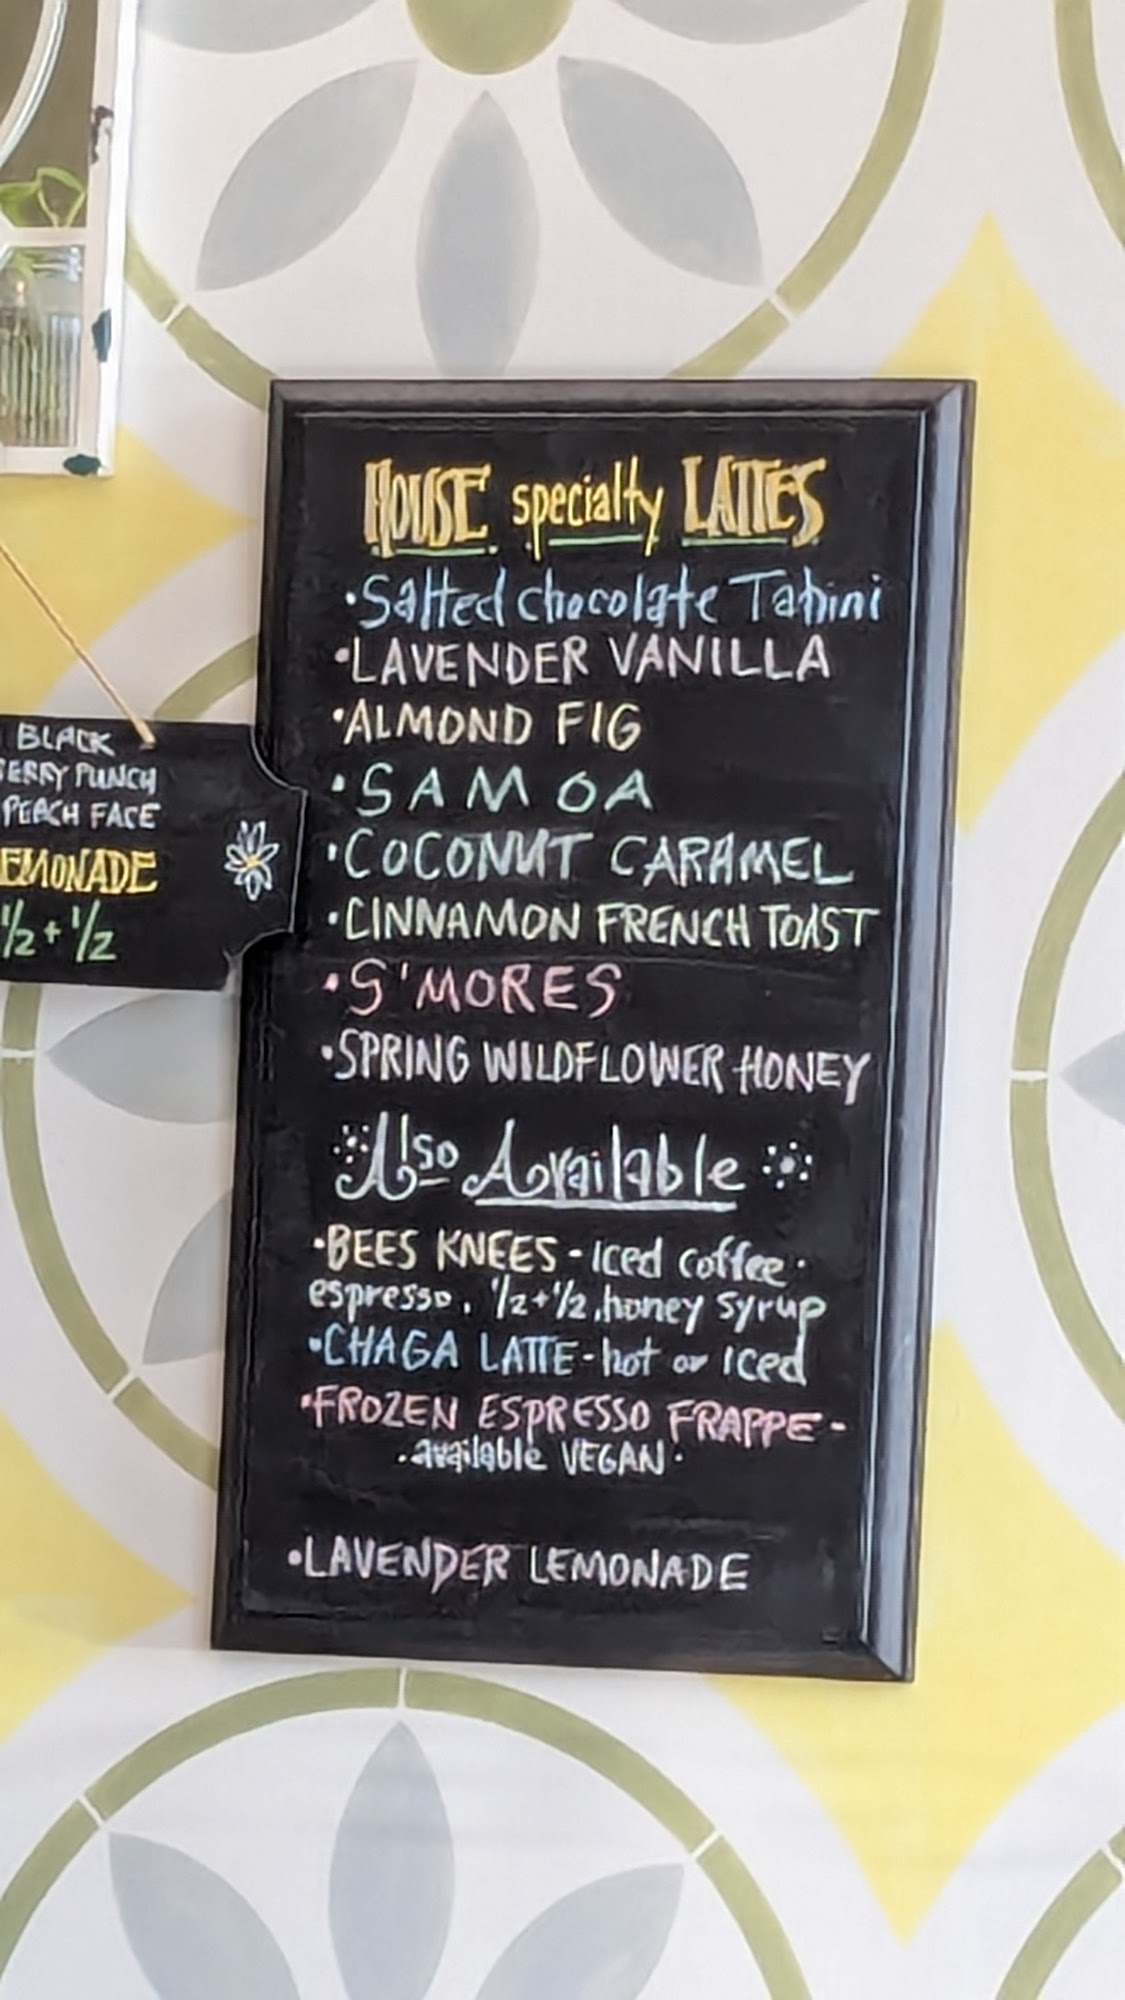 HOUSE specialty LATTES
•Salted chocolate Tahini
•LAVENDER VANILLA
•ALMOND FIG
•SAMOA
•COCONUT CARAMEL
•CINNAMON FRENCH TOAST
•S'MORES
•SPRING WILDFLOWER HONEY
Also Available
•BEES KNEES - iced coffee •
espresso, ½+½, honey syrup
•CHAGA LATTE - hot or iced
•FROZEN ESPRESSO FRAPPE -
•available VEGAN•
•LAVENDER LEMONADE
BLACK
BERRY PUNCH
PEACH FACE
LEMONADE
½+½